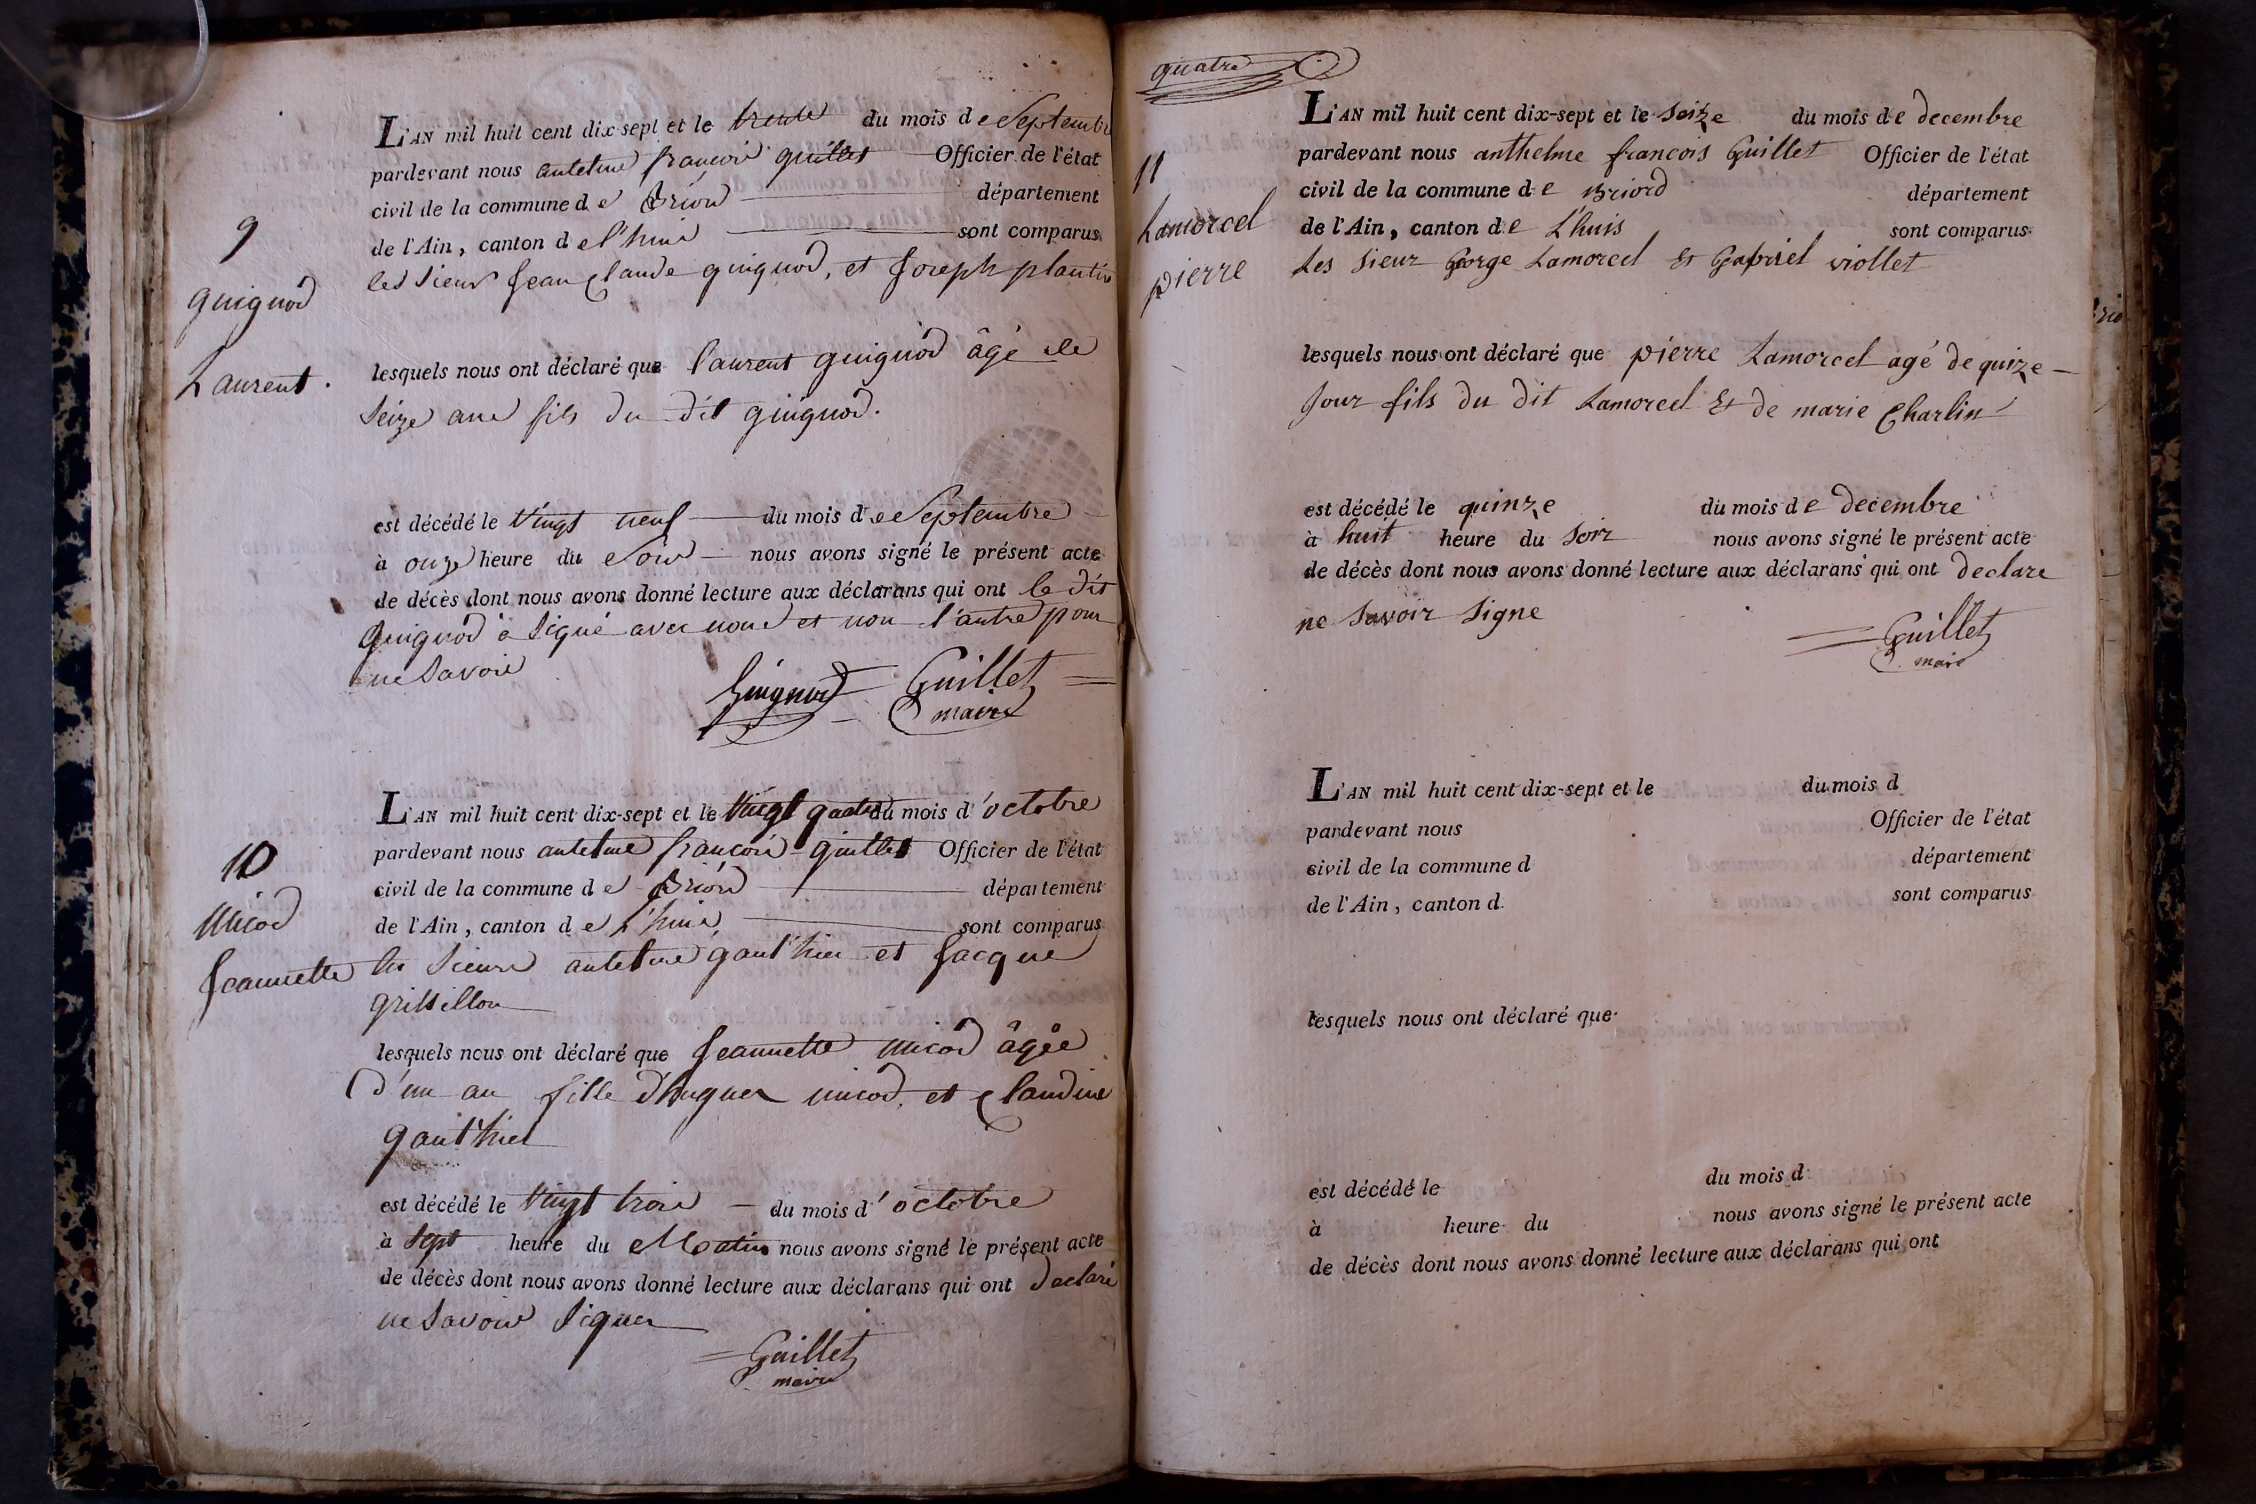 L'AN mil huit cent dix-sept et le trente du mois de Septembre
pardevant nous antelme françois guillet Officier de l'état
civil de la commune de Briord département
de l'Ain, canton de l'huis sont comparus
9
guignod
Laurent.
les sieurs Jean Claude guignod, et Joseph plantin
lesquels nous ont déclaré que laurent guignod âgé de
seize ans fils du dit guignod.
est décédé le vingt neuf du mois de Septembre
à onze heure du soir nous avons signé le présent acte
de décès dont nous avons donné lecture aux déclarans qui ont le dit
guignod à signé avec nous et non l'autre pour
ne savoir
Guignod Guillet
maire
L'AN mil huit cent dix-sept et le vingt quatre du mois d'octobre
pardevant nous antelme françois guillet Officier de l'état
civil de la commune de Briord département
de l'Ain, canton de L'huis, sont comparus
10
micod
Jeannette
les sieurs antelme gaut'hier et Jacque
grissillon
lesquels nous ont déclaré que Jeannette micod âgée
d'un an fille d'hugues micod, et Claudine
gaut'hier
est décédé le vingt trois du mois d'octobre
à sept heure du Matin nous avons signé le présent acte
de décès dont nous avons donné lecture aux déclarans qui ont declaré
ne savoir signer
Guillet
maire
quatre
L'AN mil huit cent dix-sept et le seize du mois de decembre
pardevant nous anthelme francois Guillet Officier de l'état
civil de la commune de Briord département
de l'Ain, canton de L'huis sont comparus
11
Lamorcel
pierre
Les sieur George Lamorcel Et Gabriel viollet
lesquels nous ont déclaré que pierre Lamorcel agé de quize
Jour fils du dit Lamorcel Et de marie Charlin
est décédé le quinze du mois de decembre
à huit heure du soir nous avons signé le présent acte
de décès dont nous avons donné lecture aux déclarans qui ont declare
ne savoir signe
Guillet
maire
L'AN mil huit cent dix-sept et le du mois d
pardevant nous Officier de l'état
civil de la commune d département
de l'Ain, canton d sont comparus
lesquels nous ont déclaré que
est décédé le du mois d
à heure du nous avons signé le présent acte
de décès dont nous avons donné lecture aux déclarans qui ont